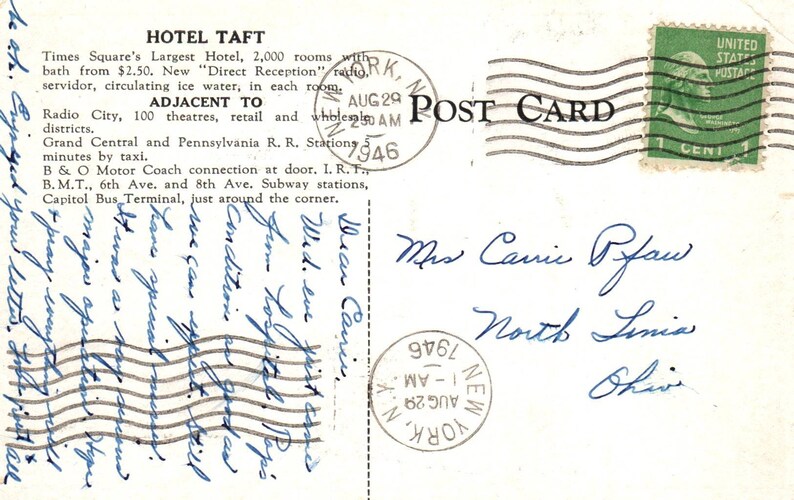 HOTEL TAFT
Times Square's Largest Hotel, 2,000 rooms with
bath from $2.50. New "Direct Reception" radio,
servidor, circulating ice water, in each room.
ADJACENT TO
Radio City, 100 theatres, retail and wholesale
districts.
Grand Central and Pennsylvania R. R. Stations 5
minutes by taxi.
B & O Motor Coach connection at door. I.R.T.,
B.M.T., 6th Ave. and 8th Ave. Subway stations,
Capitol Bus Terminal, just around the corner.
NEW YORK, N.Y.
AUG 29
2 30 AM
1946
POST CARD
UNITED
STATES
POSTAGE
GEORGE
WASHINGTON
1 CENT 1
Mrs Carrie Pfau
North Lima
Ohio
NEW YORK, N.Y.
AUG 29
1 - AM
1946
Dear Carrie,
Wed. eve just came
from hospital. Pop's
Condition as good as
we can expect. Still
have special nurse.
It was a very serious
major operation. Hope
& pray everything will
be o.k. Enjoyed your letter. Love